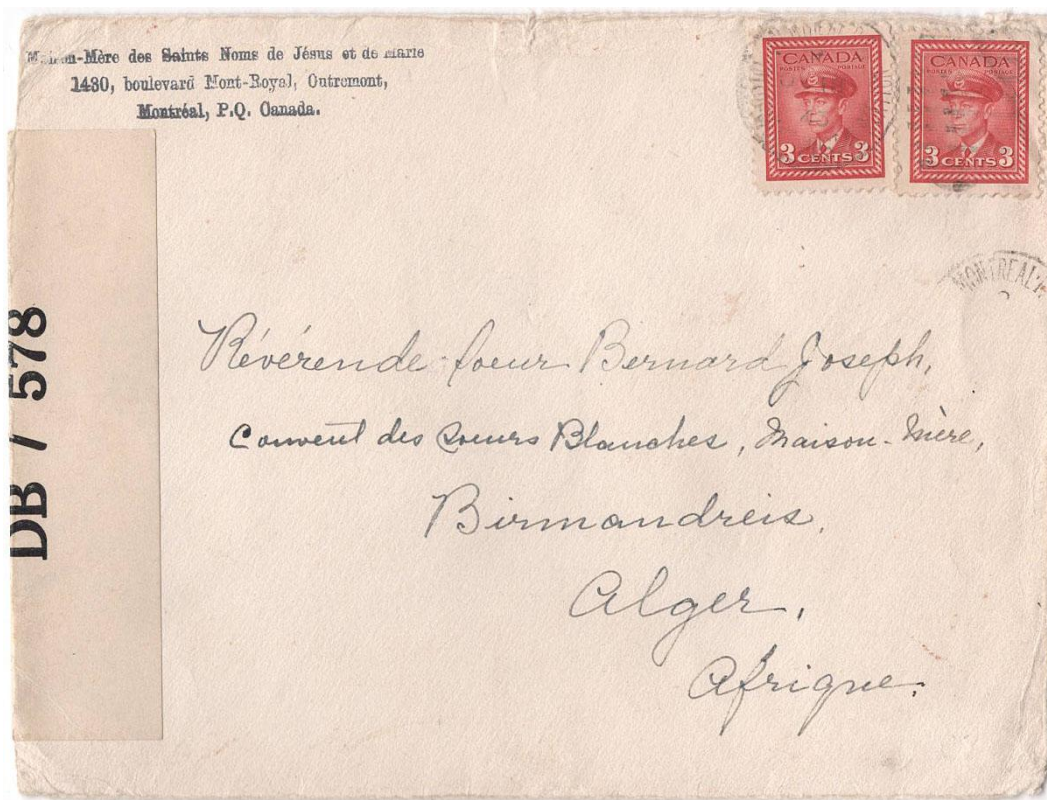 Maison-Mère des Saints Noms de Jésus et de Marie
1430, boulevard Mont-Royal, Outremont,
Montréal, P.Q. Canada.
CANADA
POSTES POSTAGE
3 CENTS 3
CANADA
POSTES POSTAGE
3 CENTS 3
MONTREAL
DB / 578
Révérende Soeur Bernard Joseph,
Couvent des Soeurs Blanches, Maison-Mère,
Birmandreis,
Alger,
Afrique.